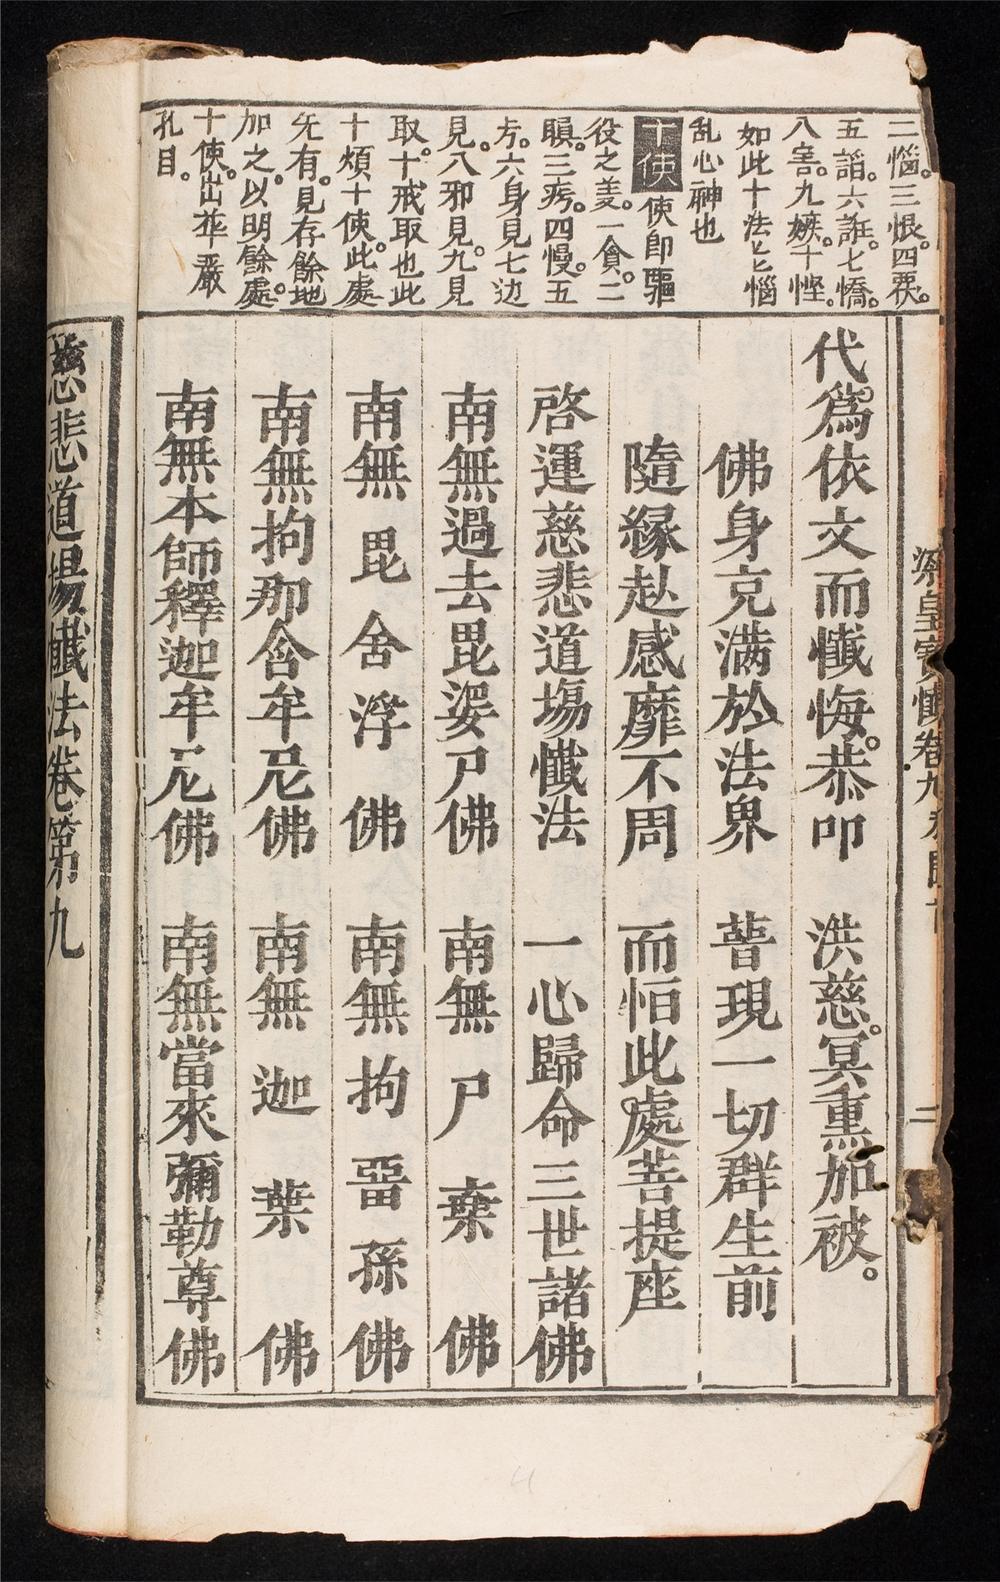 二惱。三恨。四覆。
五諂。六誑。七憍。
八害。九嫉。十慳。
如此十法七惱
乱心神也
十使 使即驅
役之義。一貪。二
瞋。三痴。四慢。五
六身見七边
見。八邪見。九見
取。十戒取也此
十煩十使。此處
旡有。見存餘地
加之。以明餘處。
十使。出華嚴
孔目。
代爲依文而懺悔。恭叩 洪慈。冥熏加被。
佛身充满於法界 普現一切群生前
隨緣赴感靡不周 而恒此處菩提座
啓運慈悲道場懺法 一心歸命三世諸佛
南無過去毘婆尸佛 南無尸棄佛
南無毘舍浮佛 南無拘畱孫佛
南無拘那含牟尼佛 南無迦葉佛
南無本師釋迦牟尼佛 南無當來彌勒尊佛
慈悲道場懺法卷第九
皇寳懺卷九
二